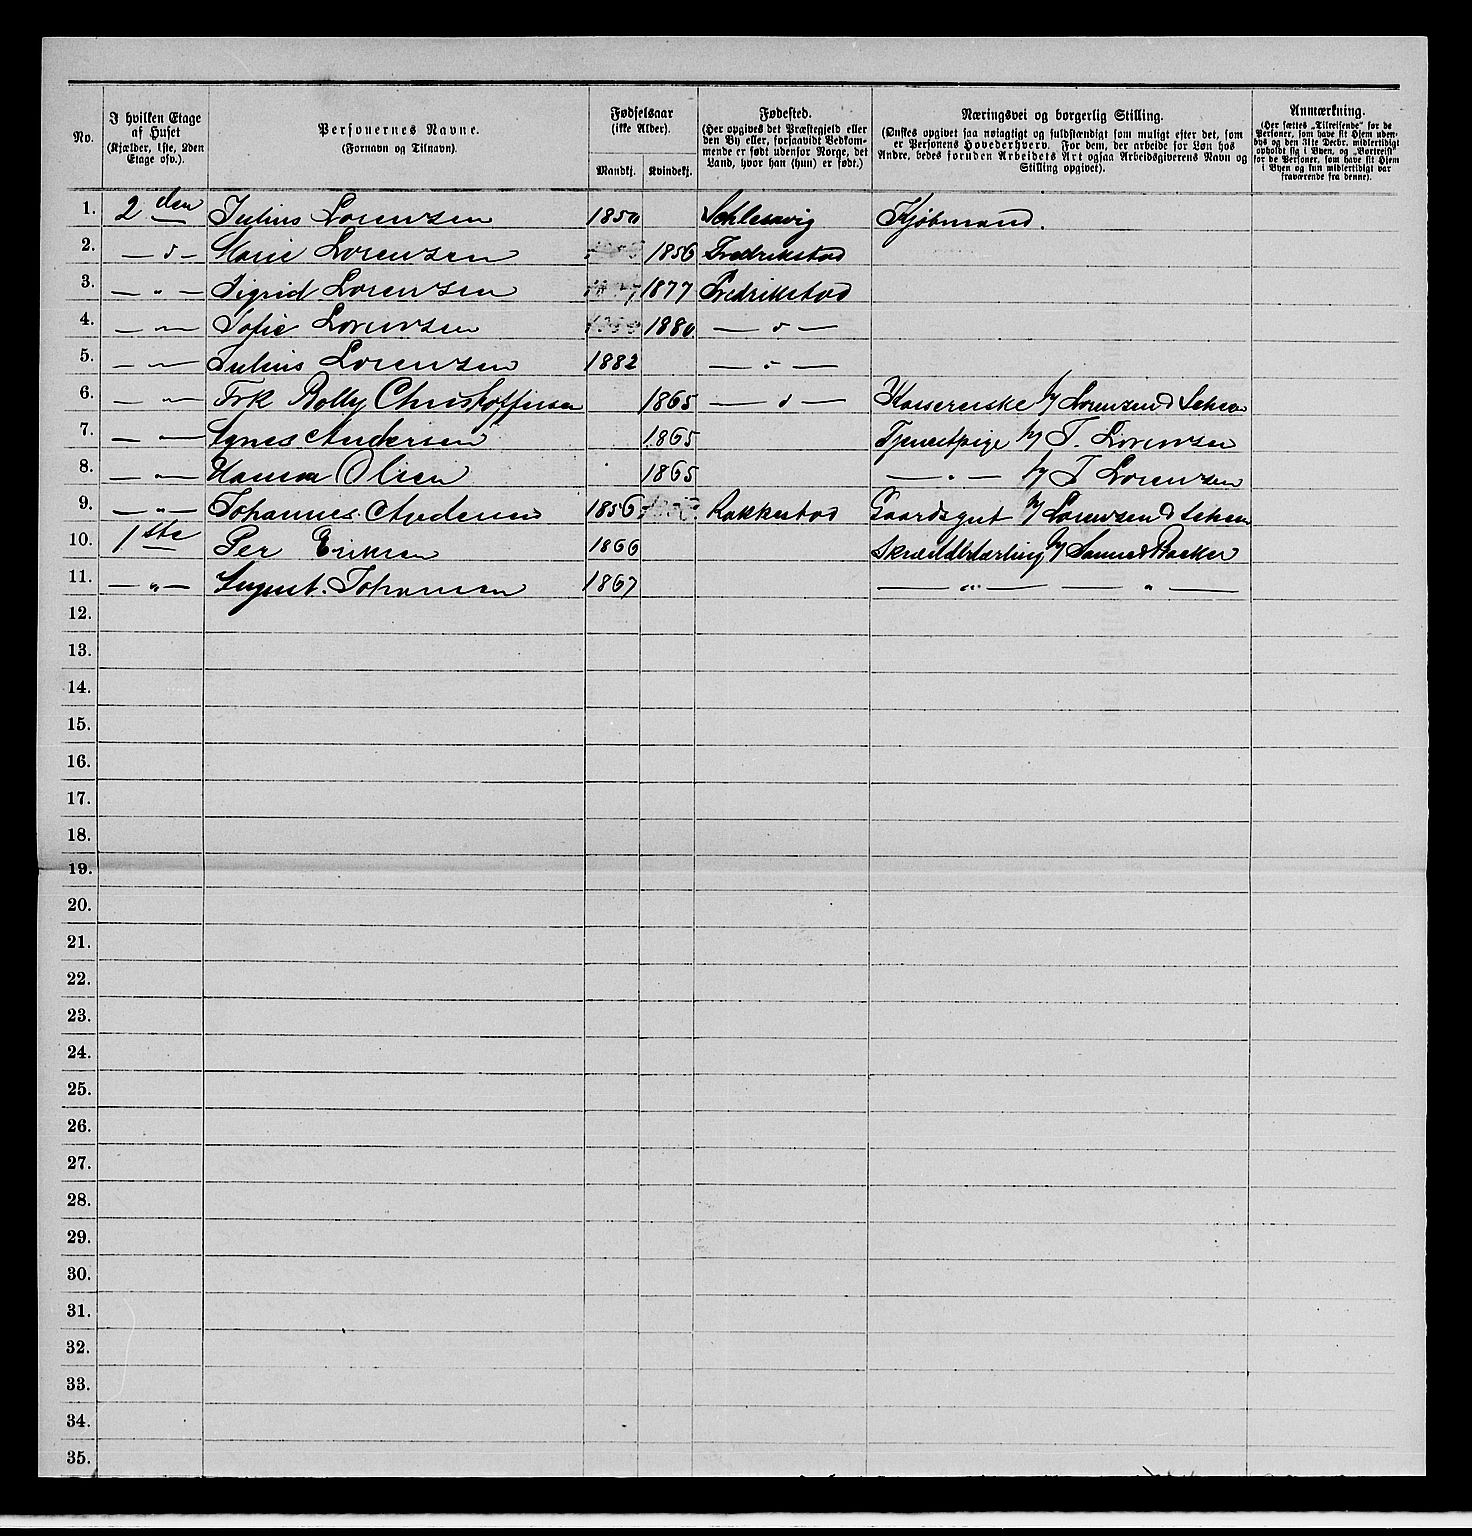 No.
I hvilken Etage
af Huset
(Kjælder, 1ste, 2den
Etage osv.).
Personernes Navne.
(Fornavn og Tilnavn).
Fødselsaar
(ikke Alder).
Mandkj. Kvindekj.
Fødested.
(Her opgives det Præstegjeld eller
den By eller, forsaavidt Bedkom-
mende er født udenfor Norge, det
Land, hvor han (hun) er født.)
Næringsvei og borgerlig Stilling.
(Ønskes opgivet saa nøiagtigt og fuldstændigt som muligt efter det, som
er Personens Hovederhverv. For dem, der arbeide for Løn hos
Andre, bedes foruden Arbeidets Art ogsaa Arbeidsgiverens Navn og
Stilling opgivet).
Anmærkning.
(Her sættes „Tilreisende" for de
Personer, som have sit Hjem uden-
bys og den 31te Decbr. midlertidigt
opholdt sig i Byen, og „Bortreist"
for de Personer, som have sit Hjem
i Byen og kun midlertidigt var
fraværende fra denne).
1. 2 den Julius Lorenzen 1850 Schlesvig Kjøbmand.
2. — " — Marie Lorenzen 1856 Fredrikstad
3. — " — Sigrid Lorenzen 1877 Fredrikstad
4. — " — Sofie Lorenzen 1880 — " —
5. — " — Julius Lorenzen 1882 — " —
6. — " — Frk Bolly Christoffersen 1865 — " — Kassererske h/ Lorenzen &
7. — " — Agnes Andersen 1865 Tjenestpige h/ J. Lorenzen
8. — " — Hanna Olsen 1865 — " — h/ J Lorenzen
9. — " — Johannes Andersen 1856 Rakkestad Gaardsgut h/ Lorenzen &
10. 1 ste Per Eriksen 1866 h/
11. — " — August Johansen 1867 — " — — " —
12.
13.
14.
15.
16.
17.
18.
19.
20.
21.
22.
23.
24.
25.
26.
27.
28.
29.
30.
31.
32.
33.
34.
35.